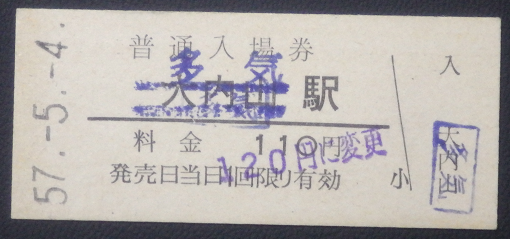 57.-5.-4.
普通入場券
多気
大内山駅
料金 110円
120円に変更
発売日当日1回限り有効 小
入
大内
多気